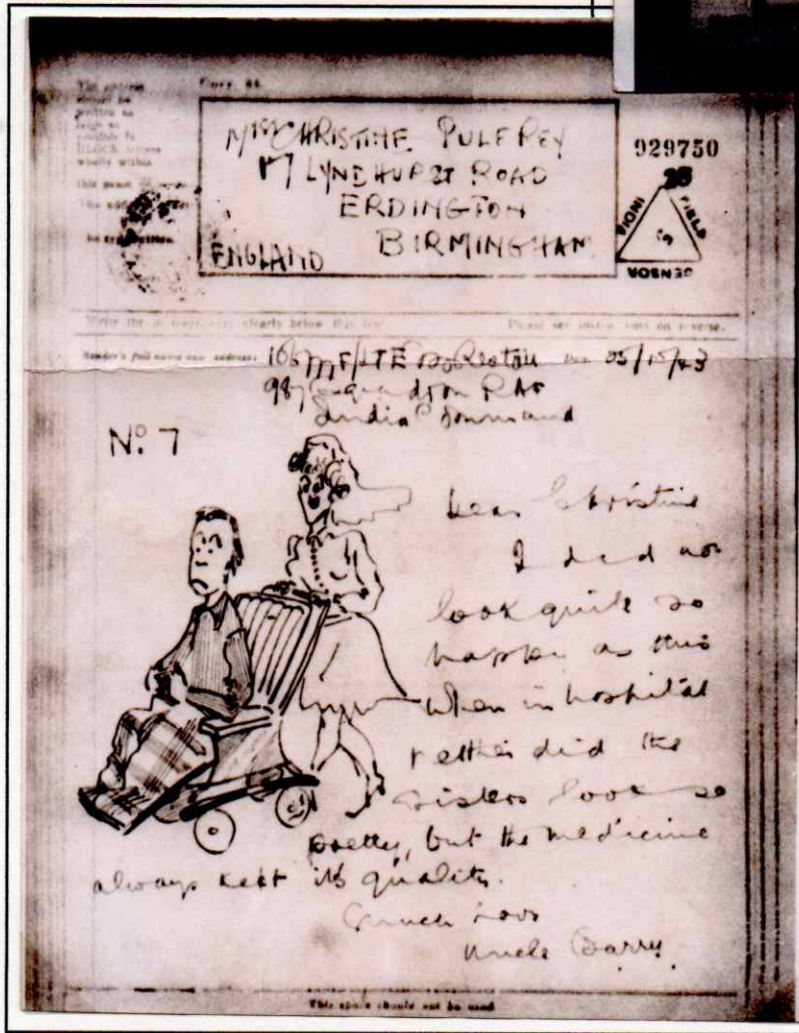 The address
should be
written as
large as
BLOCK letters
wholly within
this panel
MISS CHRISTINE PULFREY
17 LYNDHURST ROAD
ERDINGTON
BIRMINGHAM
ENGLAND
929750
25
FIELD
Write the message very clearly below this line
Please see instructions on reverse.
Sender's full name and address:
F/LTE 25/10/43
Squadron RAF
India Command
No. 7
Dear Christine
I did not
look quite so
happy as this
when in hospital
neither did the
sisters look so
pretty, but the medicine
always kept its quality.
much love
Uncle Barry.
This space should not be used